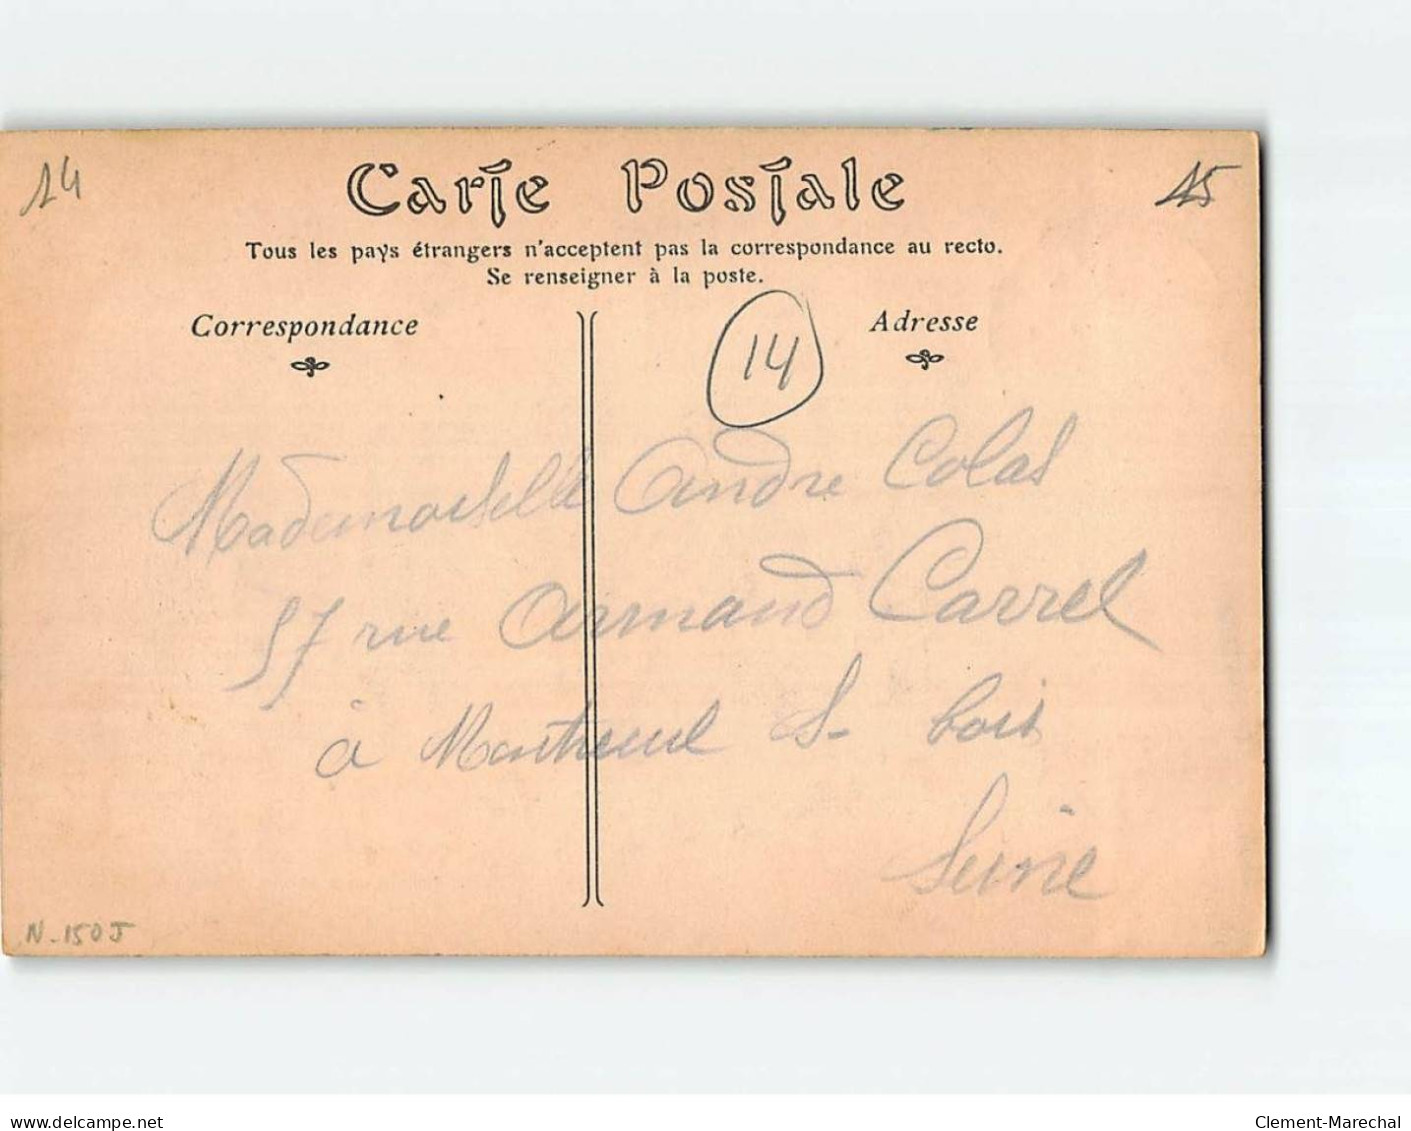 14
15
Carte Postale
Tous les pays étrangers n'acceptent pas la correspondance au recto.
Se renseigner à la poste.
Correspondance
Adresse
14
Mademoiselle Andre Colas
57 rue Armand Carrel
à Montreuil S- bois
Seine
N-150J
www.delcampe.net
Clement-Marechal